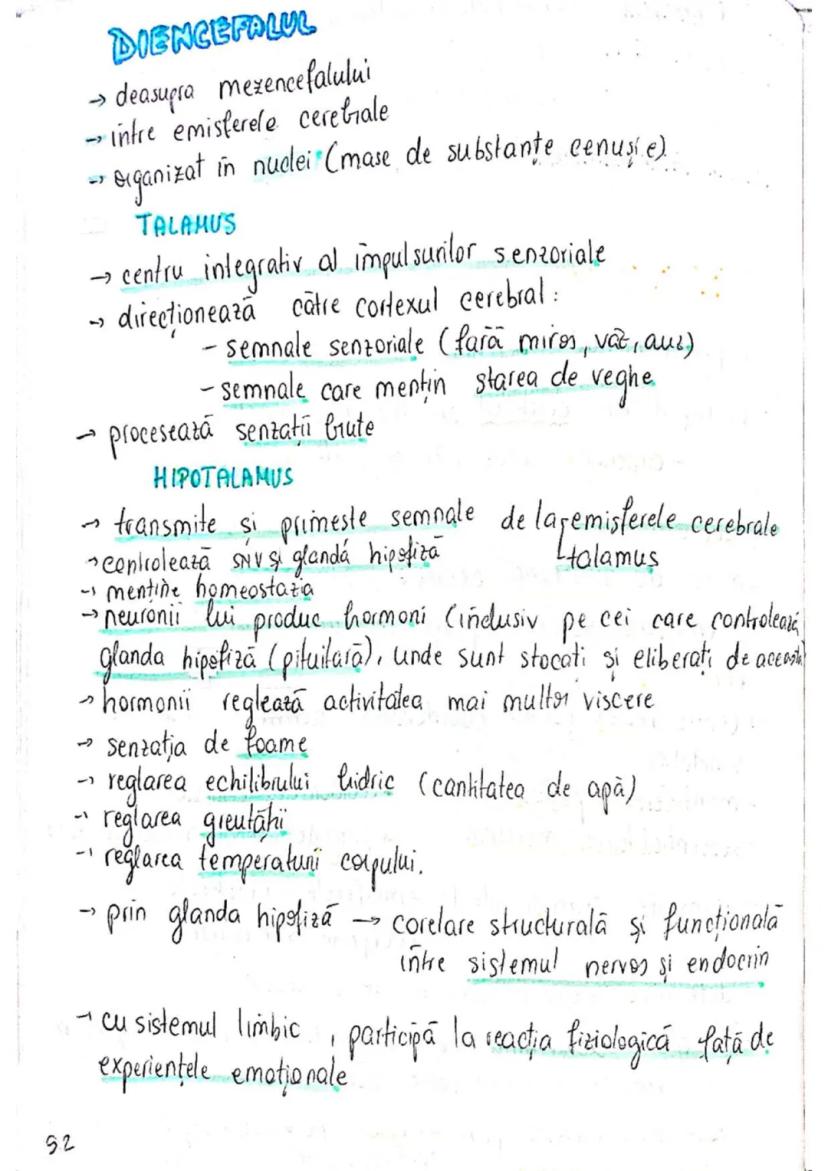 DIENCEFALUL
→ deasupra mezencefalului
→ între emisferele cerebrale
→ organizat în nuclei (mase de substanțe cenușie)
TALAMUS
→ centru integrativ al impulsurilor senzoriale
→ direcționează către cortexul cerebral:
- semnale senzoriale (fără miros, văz, auz)
- semnale care mențin starea de veghe
→ procesează senzații brute
HIPOTALAMUS
→ transmite și primește semnale de la emisferele cerebrale
→ controlează SNV și glandă hipofiză talamus
→ menține homeostazia
→ neuronii lui produc hormoni (inclusiv pe cei care controlează
glanda hipofiză (pituitară), unde sunt stocați și eliberați de aceasta)
→ hormonii reglează activitatea mai multor viscere
→ senzația de foame
→ reglarea echilibrului hidric (cantitatea de apă)
→ reglarea greutății
→ reglarea temperaturii corpului.
→ prin glanda hipofiză → corelare structurală și funcțională
între sistemul nervos și endocrin
→ cu sistemul limbic, participă la reacția fiziologică față de
experiențele emoționale
52